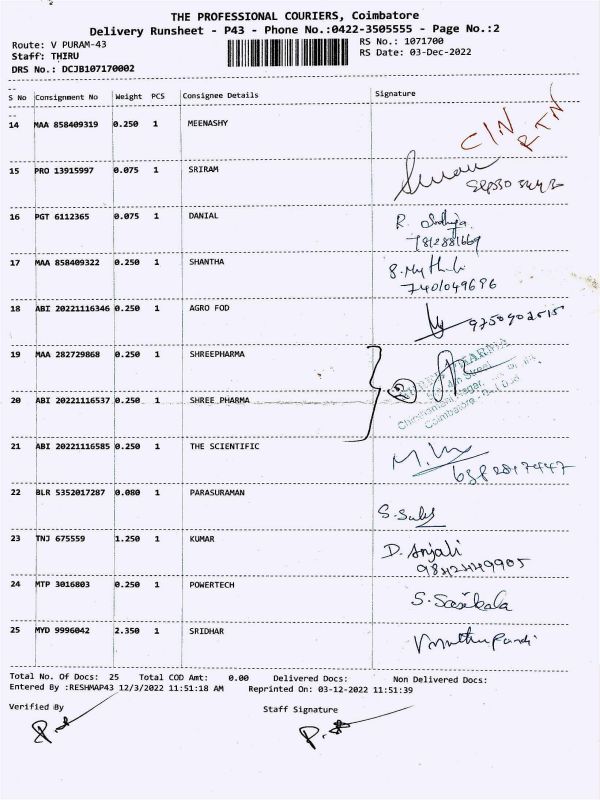 THE PROFESSIONAL COURIERS, Coimbatore
Delivery Runsheet - P43 - Phone No.:0422-3505555 - Page No.:2
Route: V PURAM-43 RS No.: 1071700
Staff: THIRU RS Date: 03-Dec-2022
DRS No.: DCJB107170002
S No Consignment No Weight PCS Consignee Details Signature
14 MAA 858409319 0.250 1 MEENASHY C/N RTN
15 PRO 13915997 0.075 1 SRIRAM
16 PGT 6112365 0.075 1 DANIAL R.
7812881669
17 MAA 858409322 0.250 1 SHANTHA
7401049696
18 ABI 20221116346 0.250 1 AGRO FOD 9750902515
19 MAA 282729868 0.250 1 SHREEPHARMA
20 ABI 20221116537 0.250 1 SHREE PHARMA 2
Coimbatore
21 ABI 20221116585 0.250 1 THE SCIENTIFIC
22 BLR 5352017287 0.080 1 PARASURAMAN
23 TNJ 675559 1.250 1 KUMAR D. Anjali
24 MTP 3016803 0.250 1 POWERTECH S. Sasikala
25 MYD 9996042 2.350 1 SRIDHAR
Total No. Of Docs: 25 Total COD Amt: 0.00 Delivered Docs: Non Delivered Docs:
Entered By :RESHMAP43 12/3/2022 11:51:18 AM Reprinted On: 03-12-2022 11:51:39
Verified By Staff Signature